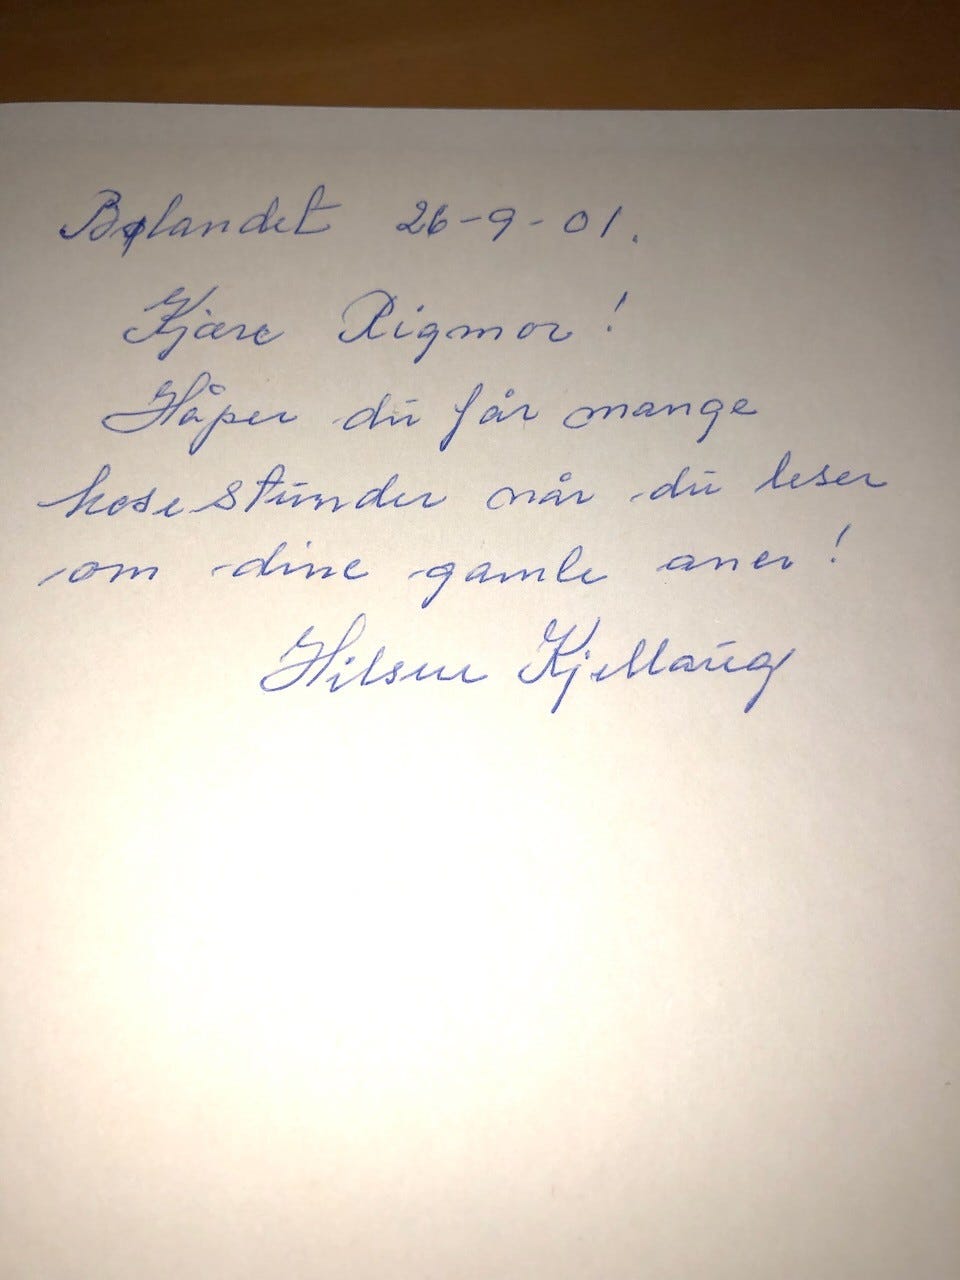 Bølandet 26-9-01.
Kjære Rigmor!
Håper du får mange
kosestunder når du leser
om dine gamle aner!
Hilsen Kjellaug